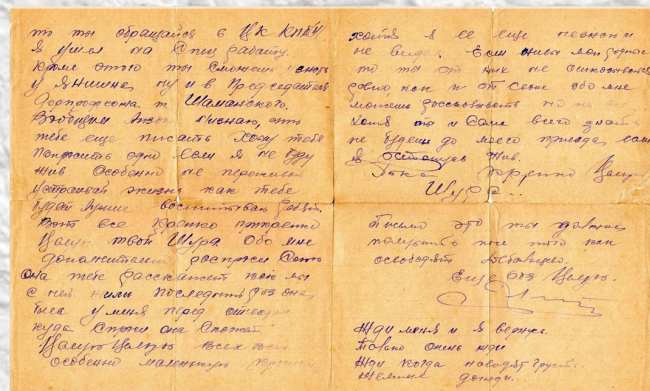 то ты обращайся в ЦК КП/б/У
Я ушел на Спец работу.
Кроме этого ты сможешь узнать
у Яншина, ну и в Председателя
т. Шаманского.
Вообщем Нюся не знаю, что
тебе еще писать Хочу тебя
попросить одно Если я не буду
жив Особенно не переживай
устраивай жизнь как тебе
будет лучше воспитывай ребят.
Вот все крепко
Целую твой Шура Обо мне
дополнительно распроси
Она тебе расскажет как мы
с ней жили последний раз она
была у меня перед
куда Скажи она
Целую Целую всех вас
особенно маленькую
хотя я ее еще
не видел. Если живы мои родные
то ты от них не отказывайся
равно как и от Сени обо мне
можешь рассказывать но не все
хотя ты и Сама всего знать
не будешь до моего приезда если
я останусь жив.
Пока крепко Целую
Шура.
Письмо это ты должна
получить после того как
освободят
Еще раз Целую.
Жди меня и я вернусь.
Только очень жди
Жди когда наводят грусть
Желтые дожди..